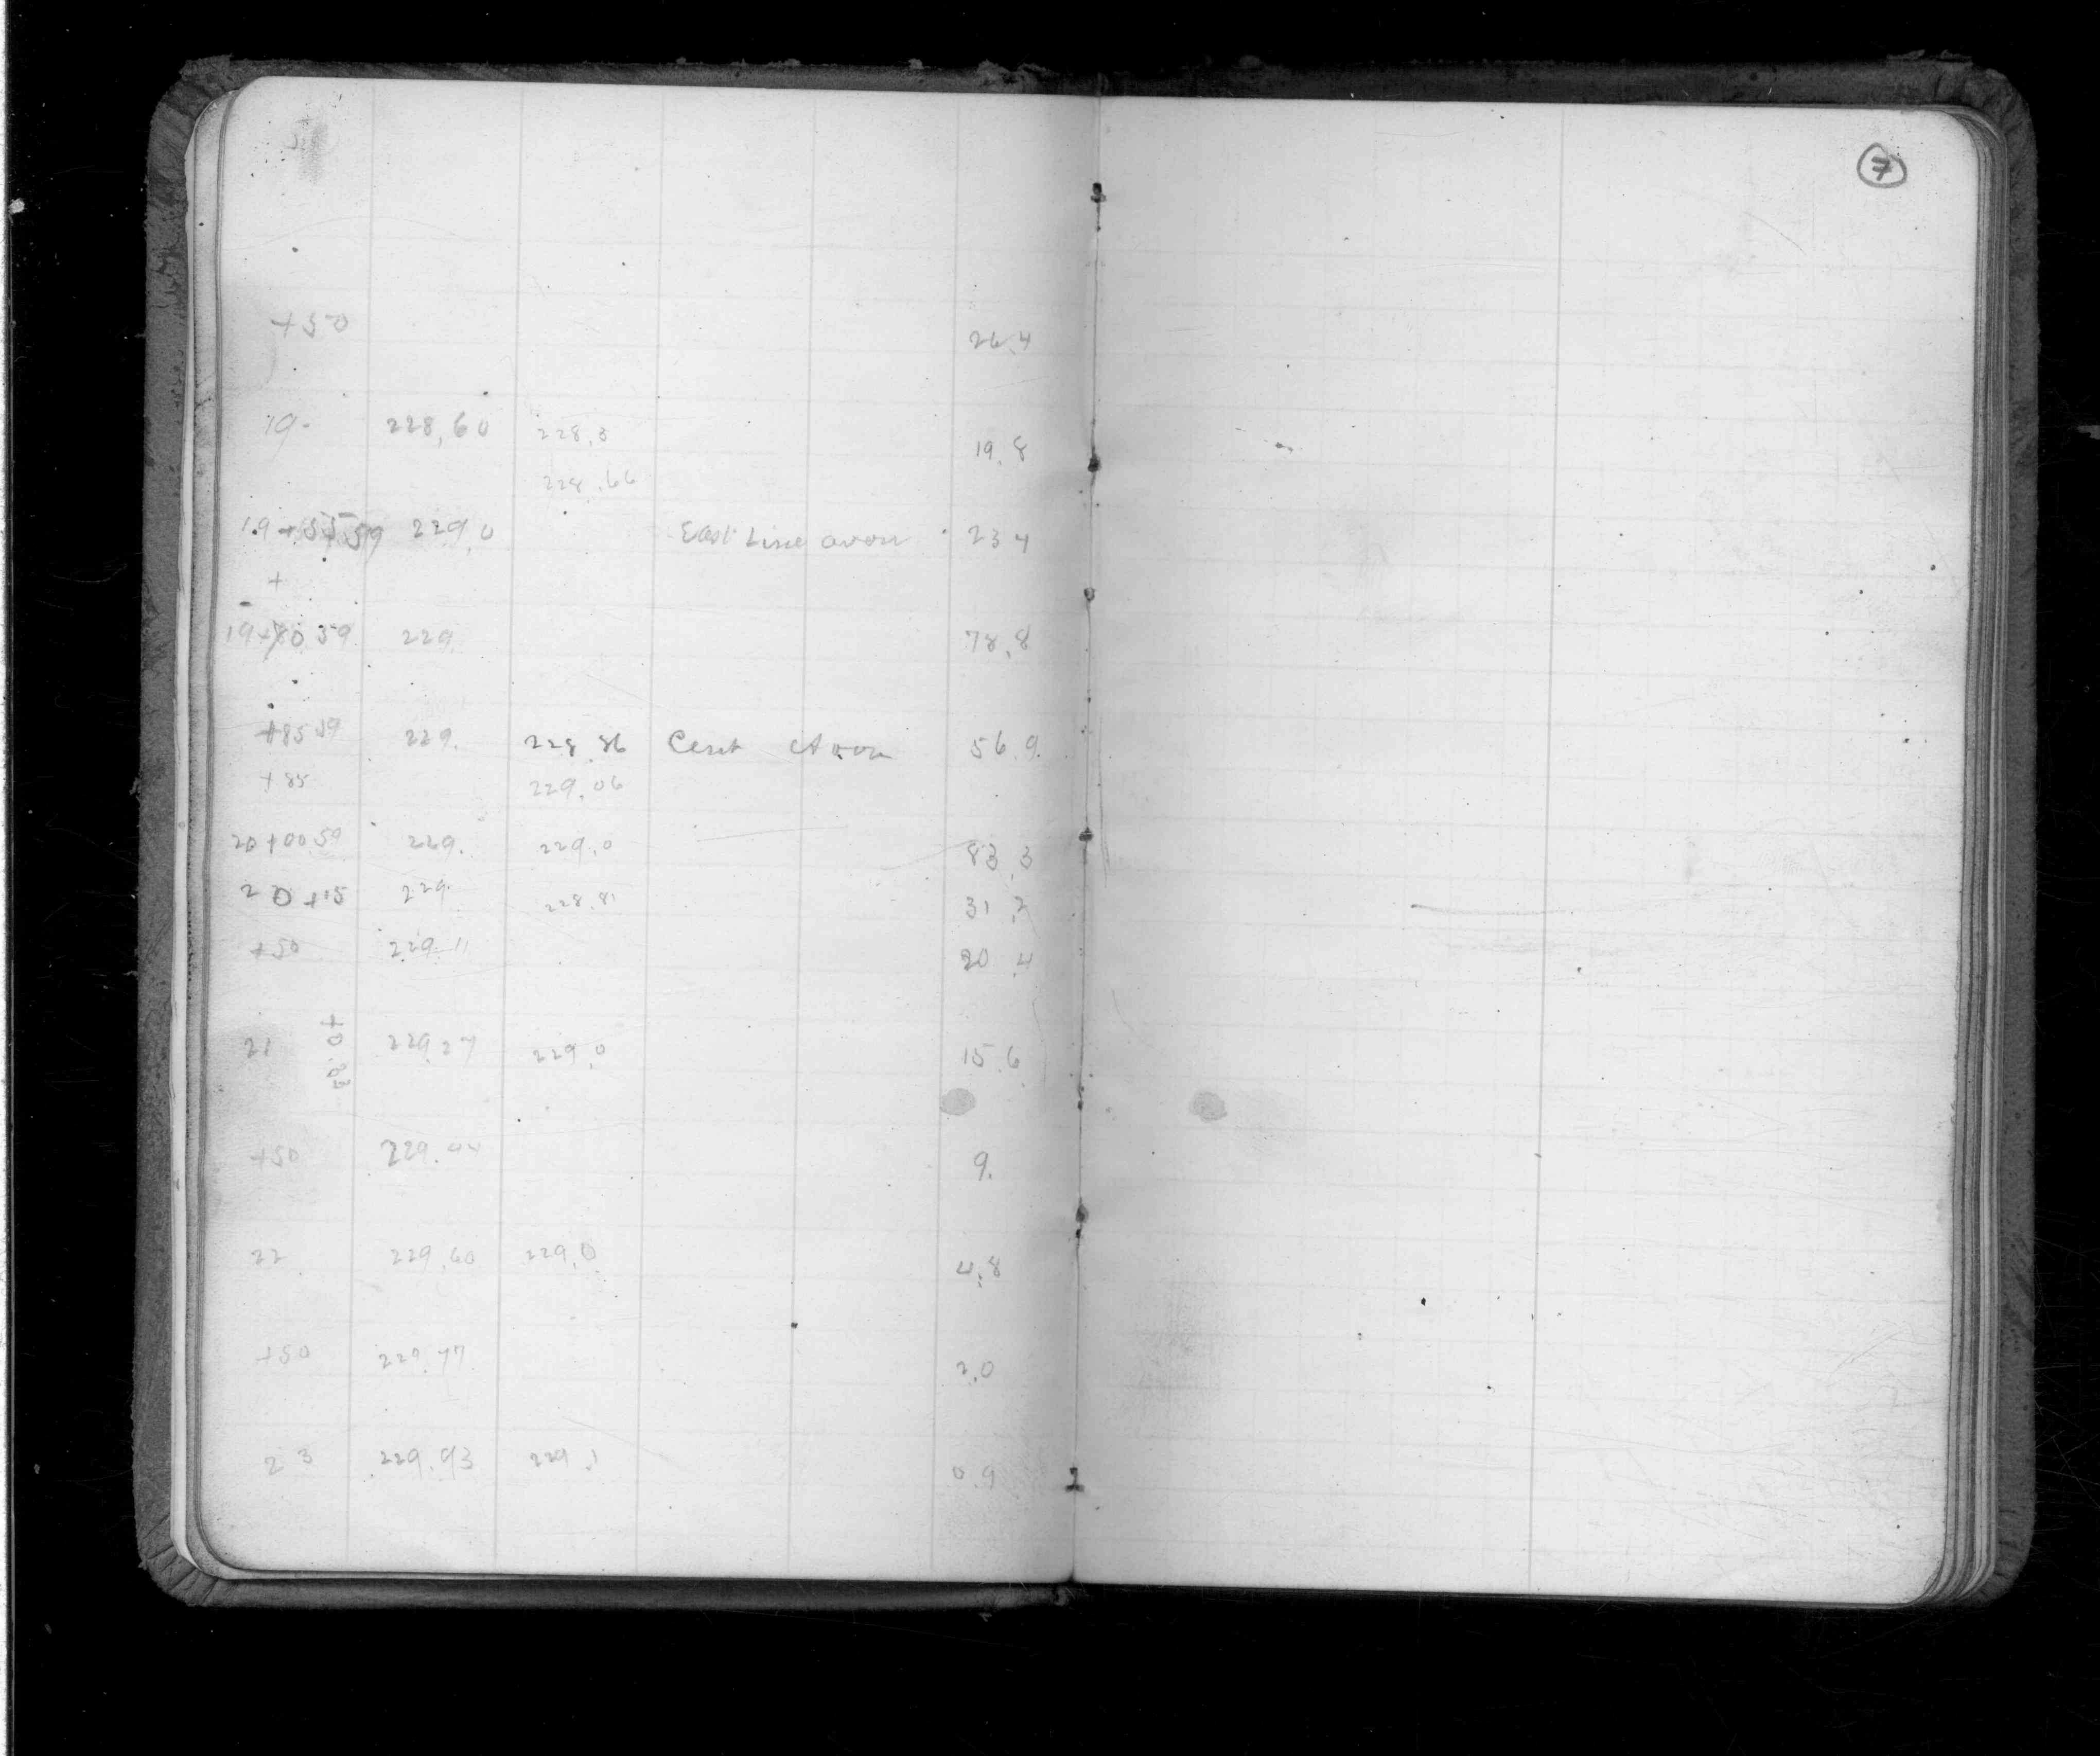 7
+50 26.4
19- 228.60 228.3 19.8
228.66
19+55.59 229.0 East Line avon 23 4
+
19+80 59 229. 78.8
+85 59 229. 228 86 Cent Avon 56.9
+85 229.06
20+00 59 229. 229.0 83.3
20 +15 229. 228.81 31.2
+50 229.11 20.4
21 229.27 229.0 15.6
+50 229.44 9.
22 229.60 229.0 4.8
+50 229.77 2.0
23 229.93 229.1 0.9